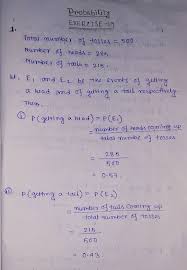 Probability
EXERCISE - 19
1.
Total number of tosses = 500
Number of heads = 285
Number of tails = 215.
let E₁ and E₂ be the events of getting
a head and of getting a tail respectively
Then,
① P(getting a head) = P(E₁)
= number of heads coming up
total number of tosses
= 285
500
= 0.57.
② P(getting a tail) = P(E₂)
= number of tails coming up
total number of tosses
= 215
500
= 0.43